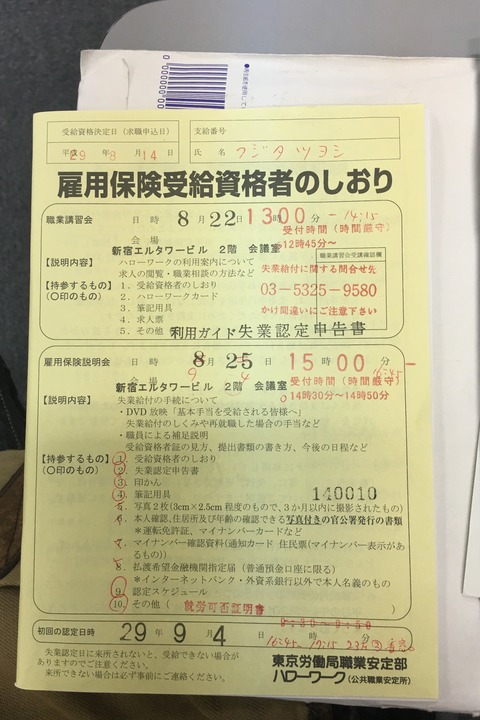 受給資格決定日(求職申込日)
平成 29 8 14
支給番号
氏 名 フジタ ツヨシ
雇用保険受給資格者のしおり
職業講習会 日 時 8 月 22 日 13 時 00 分 - 14:15
受付時間(時間厳守)
会 場
12時45分~
新宿エルタワービル 2階 会議室
職業講習会受講確認欄
【説明内容】 ハローワークの利用案内について
求人の閲覧・職業相談の方法など
失業給付に関する問合せ先
【持参するもの】 1.受給資格者のしおり
(○印のもの) 2.ハローワークカード
03-5325-9580
3.筆記用具
かけ間違いにご注意下さい
4.求人票
5.その他 利用ガイド 失業認定申告書
雇用保険説明会 日 時 8 月 25 日 15 時 00 分 -
9 4
16:45
会 場
受付時間(時間厳守)
新宿エルタワービル 2階 会議室
14時30分~14時50分
【説明内容】 失業給付の手続について
・DVD 放映「基本手当を受給される皆様へ」
失業給付のしくみや再就職した場合の手当など
・職員による補足説明
受給資格者証の見方、提出書類の書き方、今後の日程など
【持参するもの】 1.受給資格者のしおり
(○印のもの) 2.失業認定申告書
3.印かん
4.筆記用具
140010
5.写真2枚(3cm×2.5cm 程度のもので、3か月以内に撮影されたもの)
6.本人確認、住居所及び年齢の確認できる写真付きの官公署発行の書類
*運転免許証、マイナンバーカードなど
7.マイナンバー確認資料(通知カード 住民票(マイナンバー表示があるもの))
8.払渡希望金融機関指定届(普通預金口座に限る)
*インターネットバンク・外資系銀行以外で本人名義のもの
9.認定スケジュール
10.その他( 就労可否証明書 )
初回の認定日時 29 年 9 月 4 日
9:30~9:50
16:45 - 17:15
失業認定日に来所されないと、受給できない場合がありますのでご注意ください。
来所できない場合は必ず事前にご連絡ください。
東京労働局職業安定部
ハローワーク(公共職業安定所)